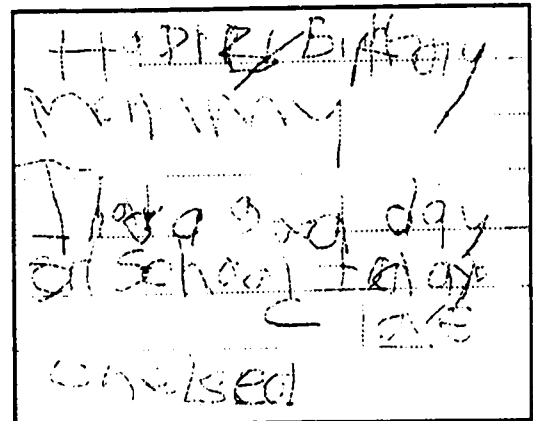 HAPPEy Birthday
mommy
I had a good day
at School today
Love